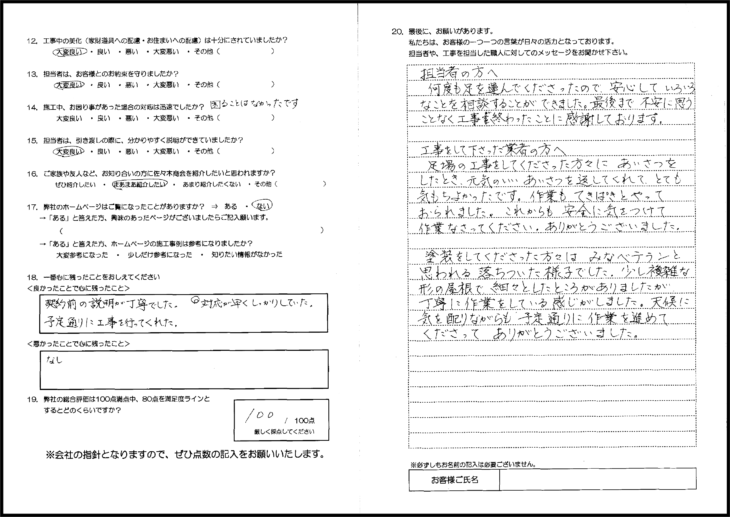 12. 工事中の美化（家財道具への配慮・お住まいへの配慮）は十分にされていましたか？
大変良い ・ 良い ・ 悪い ・ 大変悪い ・ その他（　　　）
13. 担当者は、お客様とのお約束を守りましたか？
大変良い ・ 良い ・ 悪い ・ 大変悪い ・ その他（　　　）
14. 施工中、お困り事があった場合の対応は迅速でしたか？ 困ることはなかったです
大変良い ・ 良い ・ 悪い ・ 大変悪い ・ その他（　　　）
15. 担当者は、引き渡しの際に、分かりやすく説明ができていましたか？
大変良い ・ 良い ・ 悪い ・ 大変悪い ・ その他（　　　）
16. ご家族や友人など、お知り合いの方に佐々木商会を紹介したいと思われますか？
ぜひ紹介したい ・ まあまあ紹介したい ・ あまり紹介したくない ・ その他（　　　）
17. 弊社のホームページはご覧になったことがありますか？ ⇒ ある ・ ない
→「ある」と答えた方、興味のあったページがございましたらご記入願います。
（　　　）
→「ある」と答えた方、ホームページの施工事例は参考になりましたか？
大変参考になった ・ 少しだけ参考になった ・ 知りたい情報がなかった
18. 一番心に残ったことをおしえてください
＜良かったことで心に残ったこと＞
契約前の説明が丁寧でした。 対応が早くしっかりしていた。
予定通りに工事を行ってくれた。
＜悪かったことで心に残ったこと＞
なし
19. 弊社の総合評価は100点満点中、80点を満足度ラインと
するとどのくらいですか？
100 / 100点
厳しく採点してください
※会社の指針となりますので、ぜひ点数の記入をお願いいたします。
20. 最後に、お願いがあります。
私たちは、お客様の一つ一つの言葉が日々の活力となっております。
担当者や、工事を担当した職人に対してのメッセージをお聞かせ下さい。
担当者の方へ
何度も足を運んでくださったので、安心していろいろ
なことを相談することができました。最後まで不安に思う
ことなく工事を終わったことに感謝しております。
工事をして下さった業者の方へ
足場の工事をしてくださった方々に あいさつを
したとき 元気のいいあいさつを返してくれて とても
気もちよかったです。作業も てきぱきとやって
おられました。これからも 安全に気をつけて
作業なさってください。ありがとうございました。
塗装をしてくださった方々は みなベテランと
思われる落ちついた様子でした。少し複雑な
形の屋根で 細々としたところがありましたが
丁寧に作業をしている感じがしました。天候に
気を配りながらも 予定通りに作業を進めて
くださって ありがとうございました。
※必ずしもお名前の記入は必要ございません。
お客様ご氏名